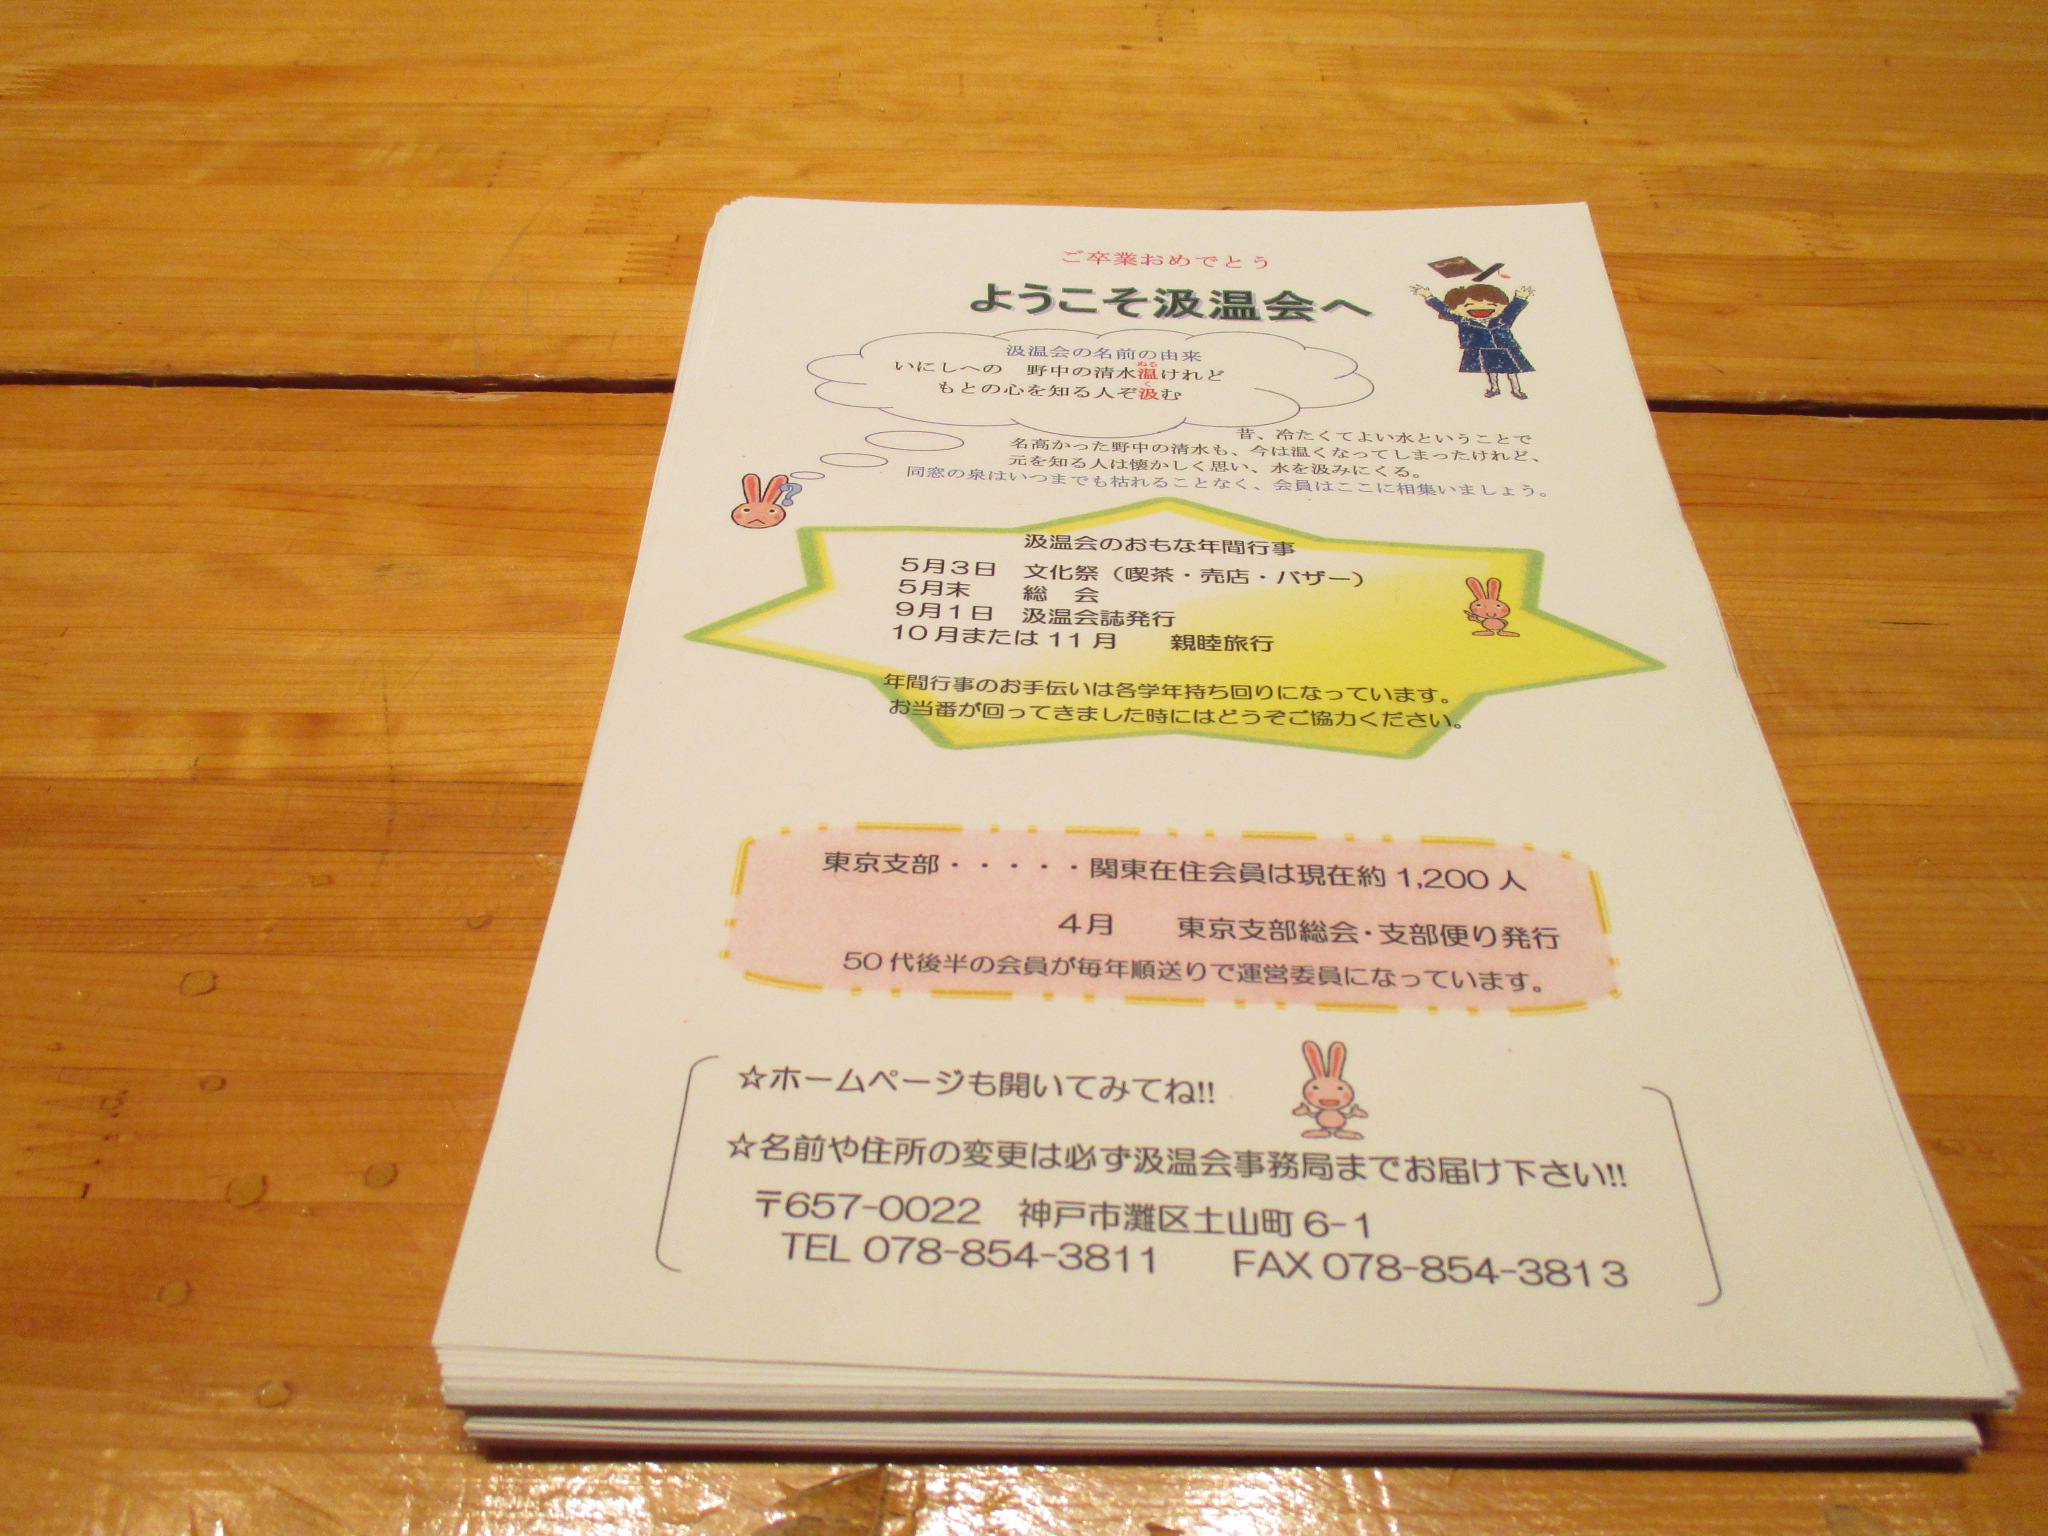 ご卒業おめでとう
ようこそ汲温会へ
汲温会の名前の由来
いにしへの　野中の清水温けれど
もとの心を知る人ぞ汲む
昔、冷たくてよい水ということで
名高かった野中の清水も、今は温くなってしまったけれど、
元を知る人は懐かしく思い、水を汲みにくる。
同窓の泉はいつまでも枯れることなく、会員はここに相集いましょう。
?
汲温会のおもな年間行事
5月3日　文化祭（喫茶・売店・バザー）
5月末　総　会
9月1日　汲温会誌発行
10月または11月　親睦旅行
年間行事のお手伝いは各学年持ち回りになっています。
お当番が回ってきました時にはどうぞご協力ください。
東京支部・・・・・関東在住会員は現在約1,200人
4月　東京支部総会・支部便り発行
50代後半の会員が毎年順送りで運営委員になっています。
☆ホームページも開いてみてね!!
☆名前や住所の変更は必ず汲温会事務局までお届け下さい!!
〒657-0022　神戸市灘区土山町6-1
TEL 078-854-3811　FAX 078-854-3813